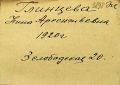 Глинцева
Нина Арсентьевна
1920г
Слободская 20.